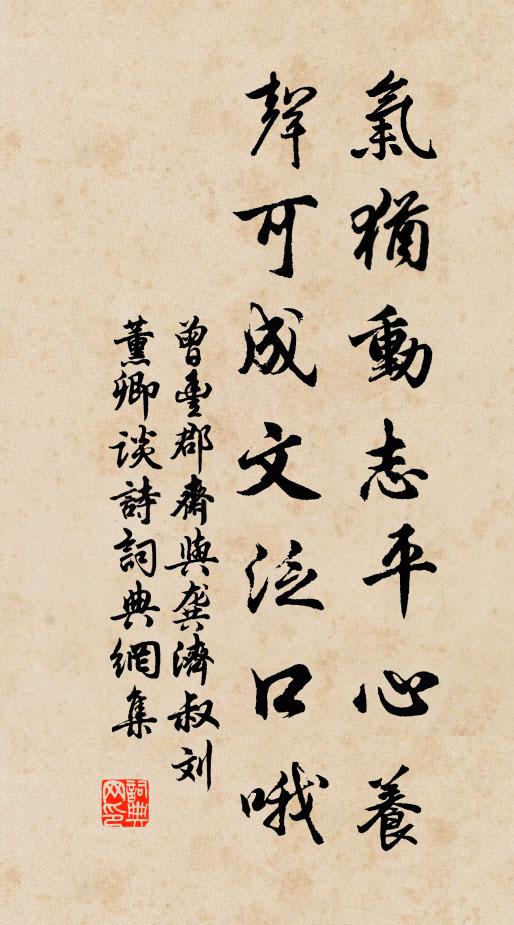 氣猶動志平心養
聲可成文泛口哦
曾豐郡齋與龔濟叔刘
薰卿谈詩詞典網集
詞典
网印